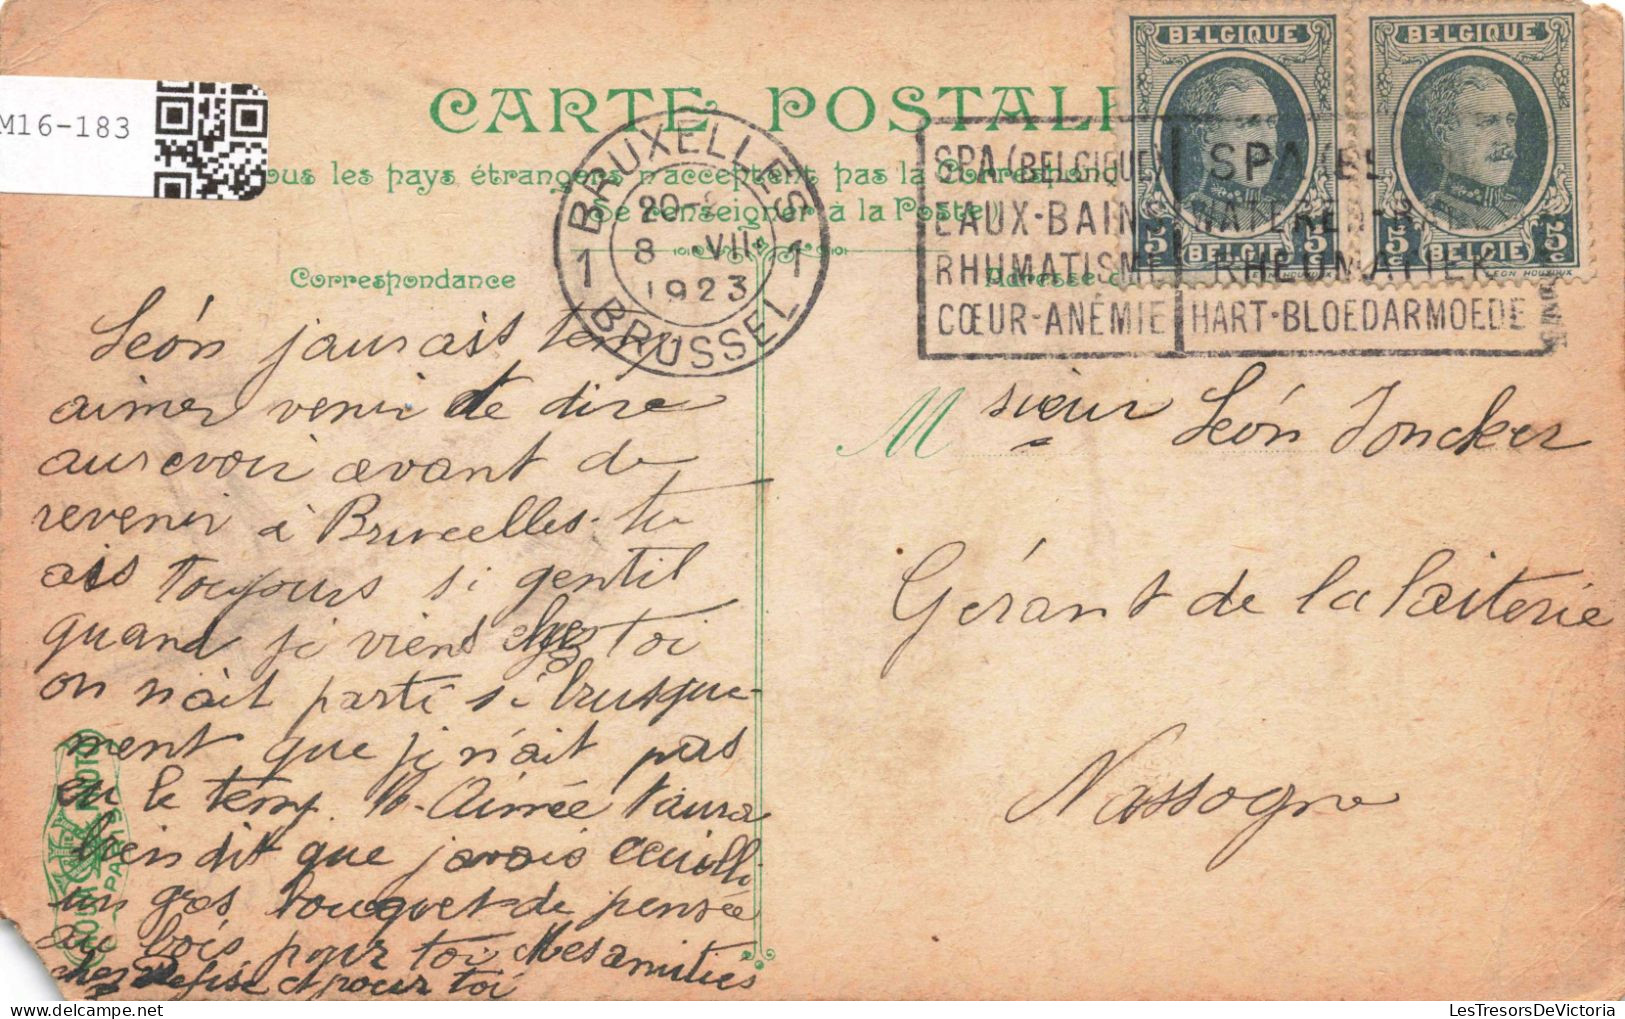 M16-183
CARTE POSTALE
ous les pays étrangers n'acceptent pas la Correspond
Se renseigner à la Poste
Correspondance
Adresse
BRUXELLES 1
BRUSSEL 1
20-
8 VII
1923
SPA (BELGIQUE)
EAUX-BAINS
RHUMATISME
CŒUR-ANÉMIE
SPA (BE
WATEREN-BA
RHEUMATIEK
HART-BLOEDARMOEDE
BELGIQUE
5c 5c
BELGIË
BELGIQUE
5c 5c
BELGIË
LEON HOUYOUX
Léon j'aurais
aimer venir te dire
aurevoir avant de
revenir à Bruxelles. tu
ais toujours si gentil
quand ji viens chez toi
on n'ait parti si brusque-
ment que ji n'ait pas
eu le temp. Aimée t'aura
bien dit que javais ceuilli
un gros bouquet de pensée
au bois pour toi Mes amitiés
chez et pour toi
Msieur Léon Joncker
Gérant de la laiterie
Nassogne
PARIS
LesTresorsDeVictoria